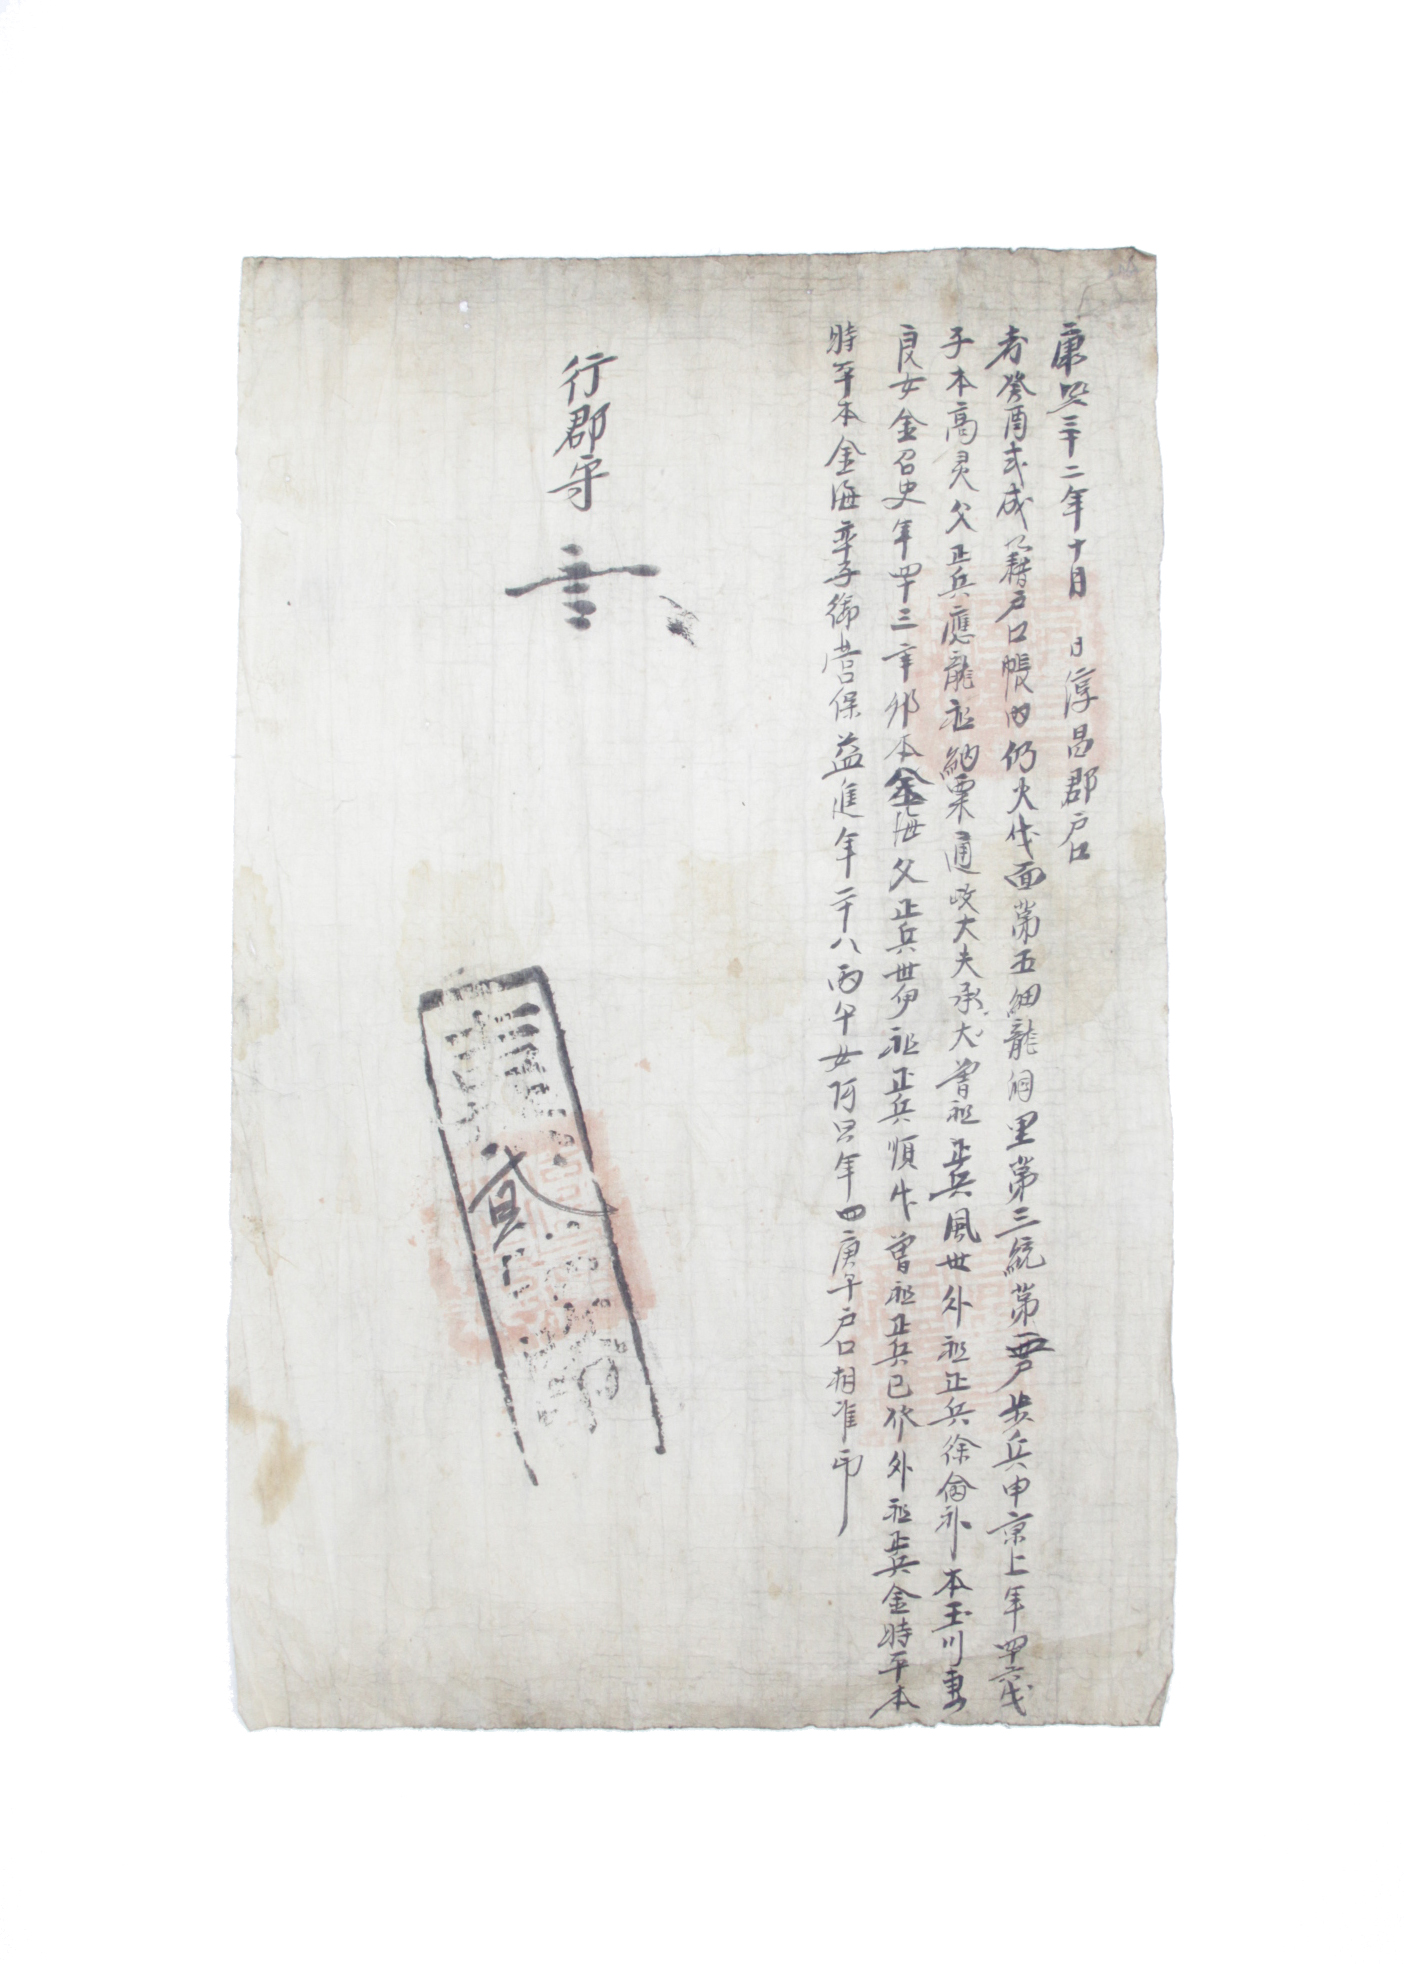 康熙三十二年十月　日淳昌郡戶口
考癸酉式成籍戶口帳內仍火伐面第五細龍洞里第三統第五戶步兵申京上年四十六戊
子本高灵父正兵應龍祖納粟通政大夫承大曾祖正兵風世外祖正兵徐備礼本玉川妻
良女金召史年四十三辛卯本金海父正兵世伊祖正兵順牛曾祖正兵已修外祖正兵金時平本
時平本金海率子御營保益進年二十八丙午女阿只年四庚午戶口相准印
行郡守
貳